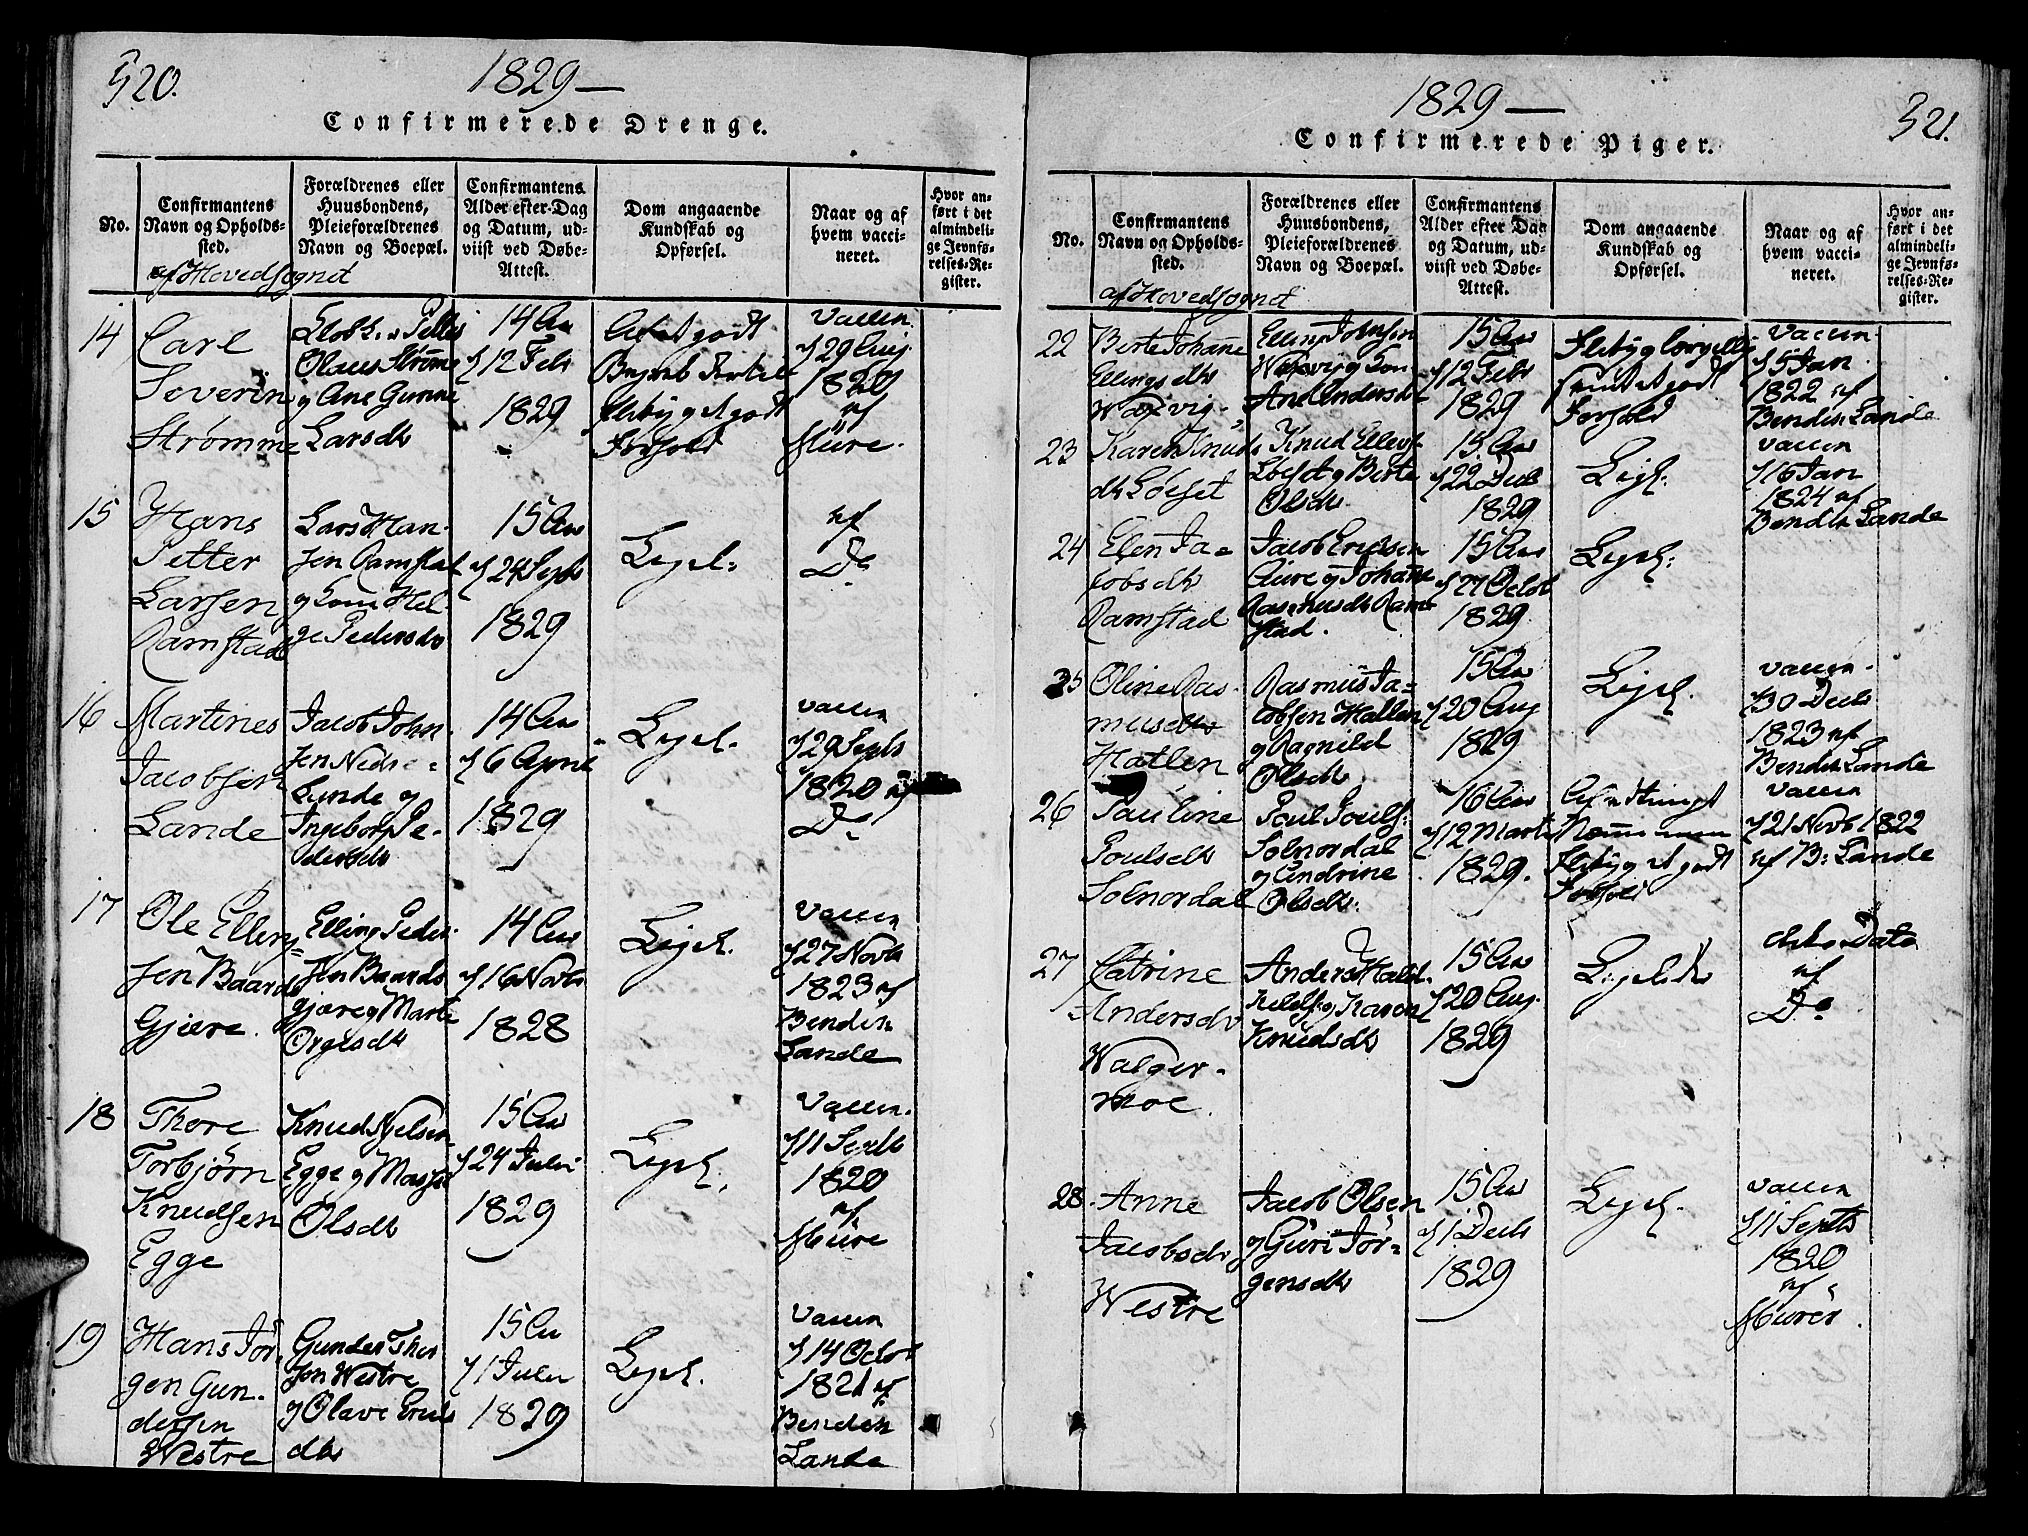 520.
1829 —
Confirmerede Drenge.
No.
Confirmantens
Navn og Opholds-
sted.
Forældrenes eller
Huusbondens,
Pleieforældrenes
Navn og Boepæl.
Confirmantens
Alder efter Dag
og Datum, ud-
viist ved Døbe-
Attest.
Dom angaaende
Kundskab og
Opførsel.
Naar og af
hvem vacci-
neret.
Hvor an-
ført i det
almindeli-
ge Jevnfø-
relses-Re-
gister.
af Hovedsognet
14
Carl
Severin
Strømme
Olaus Strømme
og Ane Gurine
Larsdtr
14 Aar
12 Febr
1829
et godt
Forhold
Vaccin
29 Aug
1820
af
Mure.
15
Hans
Petter
Larsen
Ramstad
Lars Han-
sen Ramstad
og Kone Hel-
ge Pedersdtr
15 Aar
24 Septr
1829
Ligel.
af
Do
16
Martines
Jacobsen
Lande
Jacob John
sen Nedre-
Lunde og
Ingeborg Pe-
dersdtr
14 Aar
6 April
1829
Ligel.
vaccin
29 Septr
1820 af
Do
17
Ole Elling-
sen Baards
Gjære.
Elling Peder-
sen Baards
gjære og Marte
Olsdtr
14 Aar
16 Novbr
1828
Ligel.
Vaccin
27 Novbr
1823 af
Bendix
Lande
18
Thore
Torbjørn
Knudsen
Egge
Knud Nielsen
Egge og Masse
Olsdtr
15 Aar
24 Juli
1829
Ligel.
Vaccin.
11 Septb
1820
af
Mure
19
Hans Jør-
gen Gun-
dersen
Westre
Gunder Thor
sen Westre
og Olave Eriks
dtr
15 Aar
1 Juli
1829
Ligel.
Vaccin
14 Octobr
1821 af
Bendix
Lande
1829 —
521.
Confirmerede Piger.
No.
Confirmantens
Navn og Opholds-
sted.
Forældrenes eller
Huusbondens,
Pleieforældrenes
Navn og Boepæl.
Confirmantens
Alder efter Dag
og Datum, ud-
viist ved Døbe-
Attest.
Dom angaaende
Kundskab og
Opførsel.
Naar og af
hvem vacci-
neret.
Hvor an-
ført i det
almindeli-
ge Jevnfø-
relses-Re-
gister.
af Hovedsognet
22
Berte Johane
Ellingsdtr
Waxvig
Elling Johnsen
Waxvig og Kon
Ane Endersdtr
15 Aar
12 Febr
1829
samt et godt
Forhold
Vaccin
5 Jan
1822 af
Bendix Lande
23
Karen Knuds
dtr Løeset
Knud Ellefs
Løeset og Berte
Olsdtr
15 Aar
22 Decb
1829
Ligel.
vaccin
16 Jan
1824 af
Bendix Lande
24
Elen Ja-
cobsdtr
Ramstad
Jacob Eriksen
Aure og Johanne
Rasmusdtr Ram-
stad.
15 Aar
27 Octob
1829
Ligel.
25
Oline Ras-
musdtr
Hatlen
Rasmus Ja-
cobsen Hatlen
og Ragnild
Olsdtr
15 Aar
20 Aug
1829
Ligel.
vaccin
30 Decb
1823 af
Bendix Lande
26
Pauline
Poulsdtr
Solnordal
Poul Pouls:
Solnordal
og Andrine
Olsdtr
16 Aar
12 Marts
1829.
Flid og et godt
Forhold
vaccin
21 Novb 1822
af B: Lande
27
Catrine
Andersdtr
Walger-
moe.
Anders Hald-
Karen
Knudsdtr
15 Aar
20 Aug
1829
Ligeledes
dito Dato
af
Do
28
Anne
Jacobsdtr
Westre
Jacob Olsen
og Guri Jør-
gensdtr
15 Aar
1 Decb
1829
Ligel.
vaccin
11 Septb
1820
af
Murer.